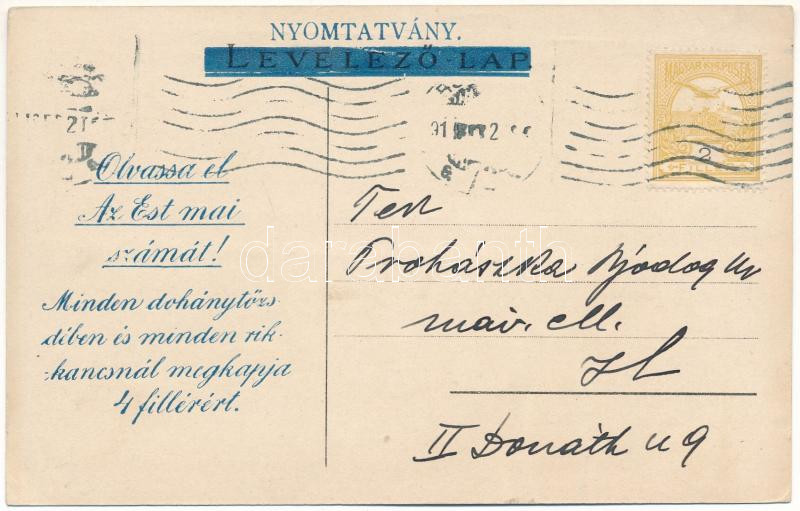 NYOMTATVÁNY.
LEVELEZŐ-LAP.
MAGYAR KIR. POSTA
2
Olvassa el
Az Est mai
számát!
Minden dohánytőzs-
dében és minden rik-
kancsnál megkapja
4 fillérért.
Prohászka
máv.
II Donáth u 9
darabanth